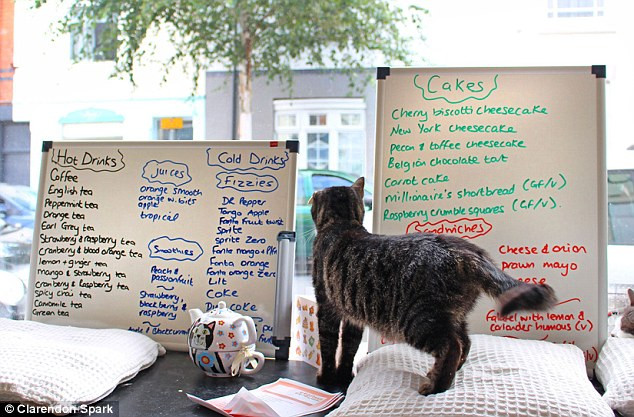 Hot Drinks
Coffee
English tea
Peppermint tea
Orange tea
Earl Grey tea
Strawberry & raspberry tea
Cranberry & blood orange tea
lemon & ginger tea
Mango & Strawberry tea
Cranberry & Raspberry tea
Spicy Chai tea
Camomile tea
Green tea
JUICES
orange smooth
orange w. bits
apple
tropical
Smoothies
Peach &
passionfruit
Strawberry,
blackberry &
Cold Drinks
Fizzies
DR Pepper
Tango Apple
Fanta Fruit twist
Sprite
Sprite Zero
Fanta mango +
Fanta orange
Fanta orange zero
Lilt
Coke
Diet Coke
Cakes
Cherry biscotti cheesecake
New York cheesecake
Pecan & toffee cheesecake
Belgian chocolate tart
Carrot cake
Millionaire's shortbread (GF/V)
Raspberry crumble squares (GF/V).
Sandwiches
Cheese & onion
prawn mayo
with lemon &
coriander houmous (V)
© Clarendon Spark